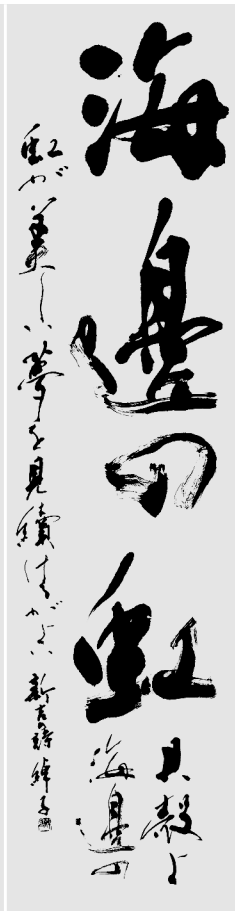 海邊の虹
貝殻よ
海邊の
虹が美しい夢を見續けるがよい 新吉詩